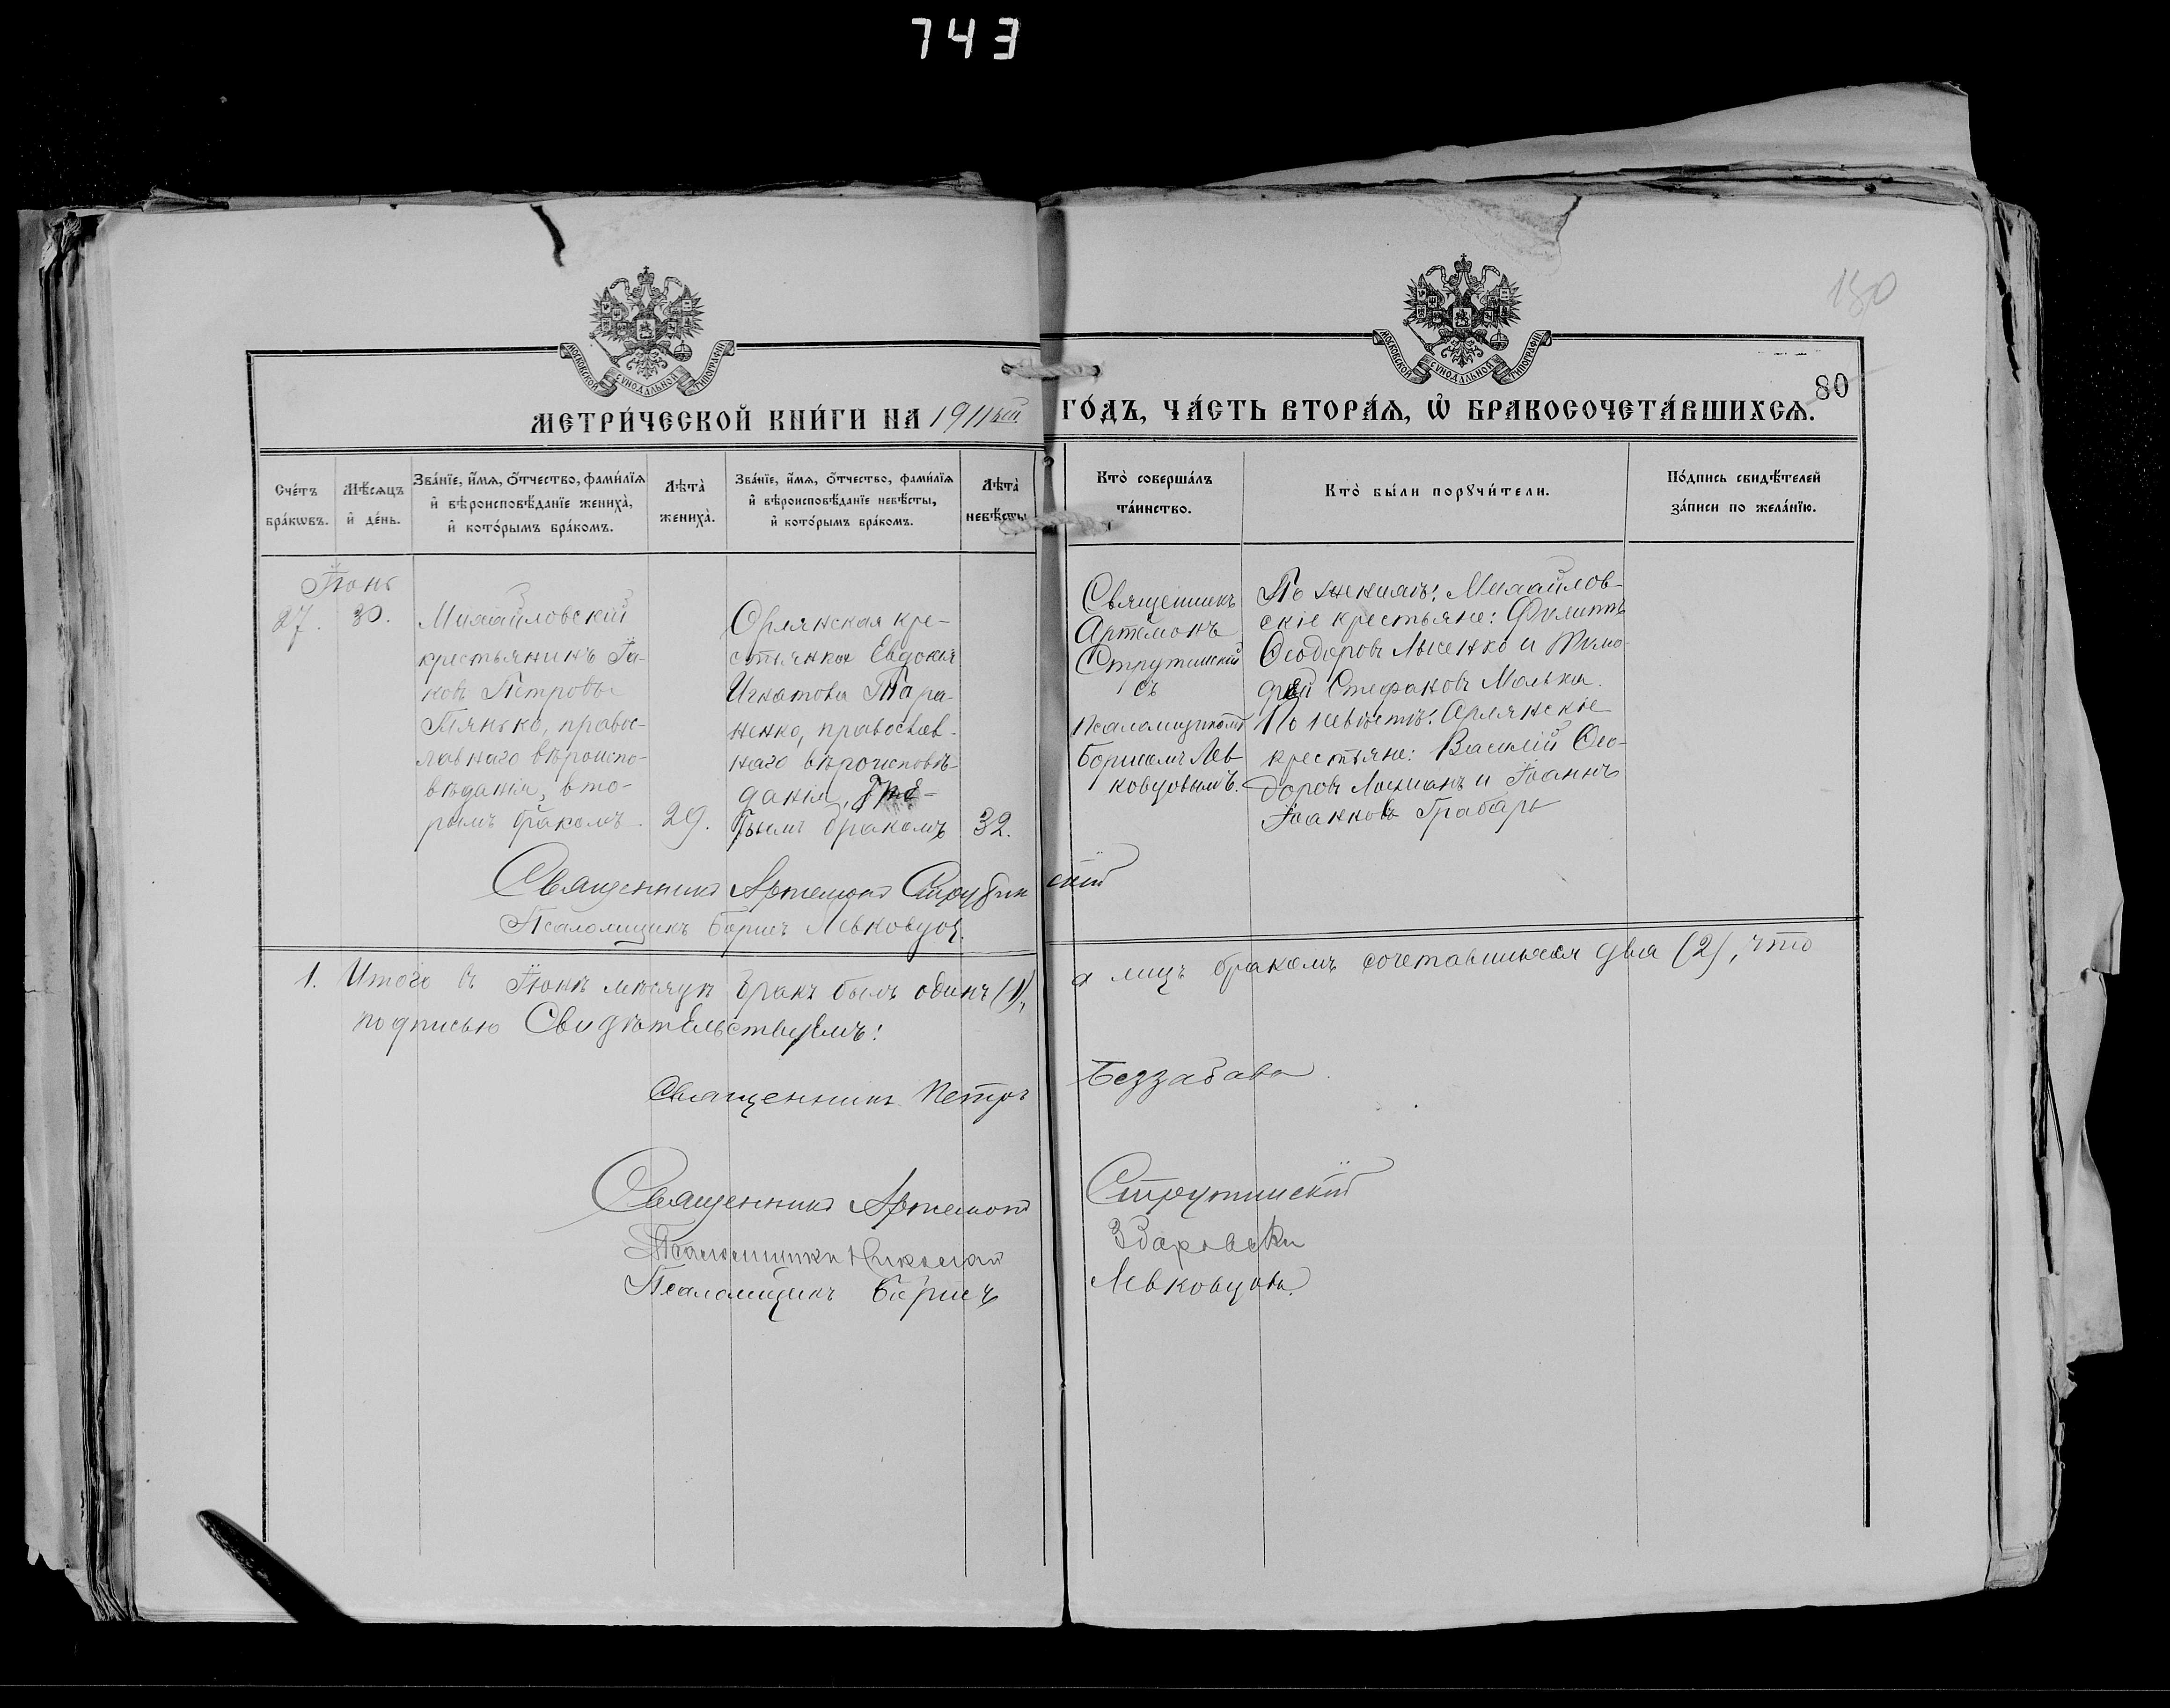 743
150
80
МОСКОВСКОЙ СѴНОДАЛЬНОЙ ТИПОГРАФІИ
МОСКОВСКОЙ СѴНОДАЛЬНОЙ ТИПОГРАФІИ
МЕТРИ́ЧЕСКОЙ КНИ́ГИ НА 1911ый ГО́ДЪ, ЧА́СТЬ ВТОРА́Ѧ, Ѡ҆ БРАКОСОЧЕТА́ВШИХСѦ.
Сче́тъ
бра́кѡвъ.
Мѣ́сѧцъ
и҆ де́нь.
Зва́нїе, и҆́мѧ, ѻ҆́тчество, фами́лїѧ
и҆ вѣроисповѣ́данїе жениха̀,
и҆ кото́рымъ бра́комъ.
Лѣта̀
жениха̀.
Зва́нїе, и҆́мѧ, ѻ҆́тчество, фами́лїѧ
и҆ вѣроисповѣ́данїе невѣ́сты,
и҆ кото́рымъ бра́комъ.
Лѣта̀
невѣ́сты
Кто̀ соверша́лъ
та́инство.
Кто̀ бы́ли порꙋчи́тели.
По́дпись свидѣ́телей
за́писи по жела́нїю.
Іюнь
27. 30.
Михайловскій
крестьянинъ Іа-
ковъ Петровъ
Пянько, правос-
лавнаго вѣроиспо-
вѣданія, вто-
рымъ бракомъ.
29.
Орлянская кре-
стьянка Евдокія
Игнатова Тара-
ненко, православ-
наго вѣроисповѣ-
данія,
бракомъ
32.
Священникъ
Артемонъ
Струтинскій
съ
псаломщикомъ
Борисомъ Лев-
ковцовымъ.
По женихѣ: Михайлов-
скіе крестьяне: Филиппъ
Ѳеодоровъ Лысенко и Тимо-
фей Стефановъ Малька.
По невѣстѣ: Орлянскіе
крестьяне: Василій Ѳео-
доровъ и Іоаннъ
Іоанновъ Грабарь
Священникъ Артемонъ Струтинскій
Псаломщикъ Борисъ Левковцовъ.
1. Итого въ Іюнѣ мѣсяцѣ бракъ былъ одинъ (1), а лицъ бракомъ сочетавшихся два (2), что
подписью Свидѣтельствуемъ:
Священникъ Петръ Беззабава.
Священникъ Артемонъ Струтинскій
Псаломщикъ Николай
Псаломщикъ Борисъ Левковцовъ.